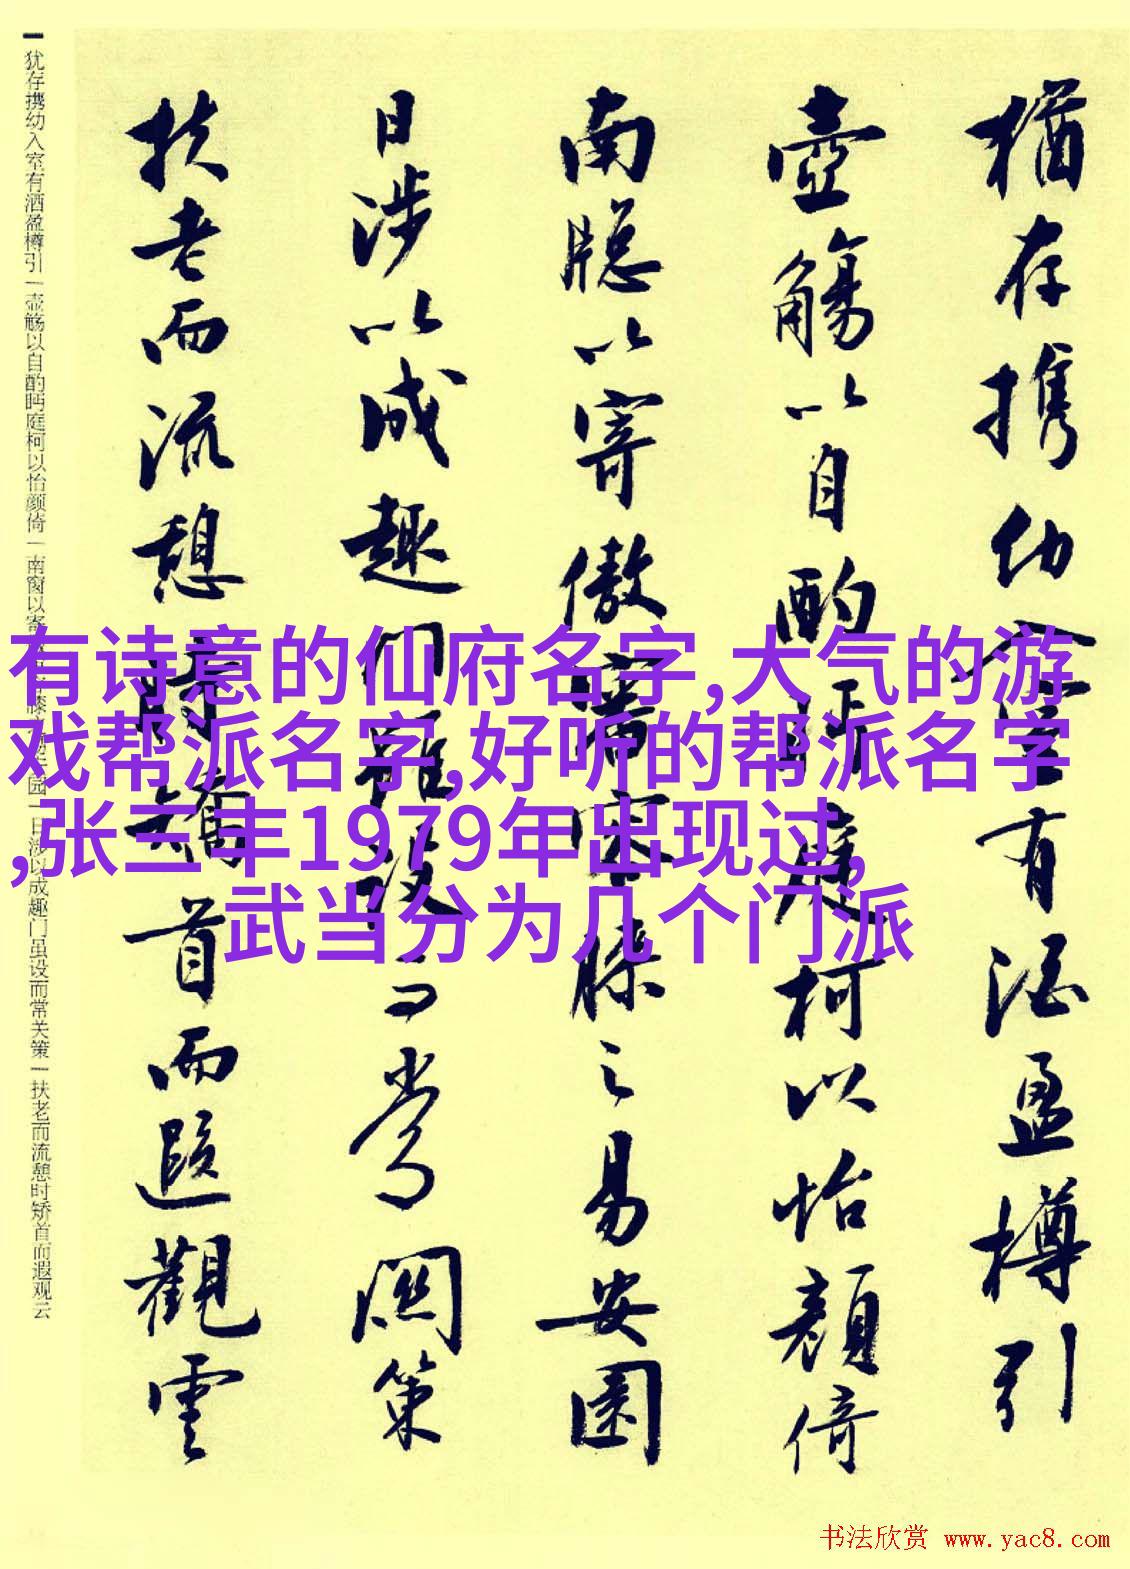 猶存携幼入室有酒盈樽引
壺觴以自酌眄庭柯以怡顔倚
南牕以寄傲審容膝之易安園
日涉以成趣門雖設而常関策
扶老而流憩時矯首而遐觀雲
犹存携幼入室有酒盈樽引一壶觞以自酌眄庭柯以怡颜倚一南窗以寄 膝 园一日涉以成趣门虽设而常关策一扶老而流憩时矫首而遐观云
有诗意的仙府名字,大气的游
戏帮派名字,好听的帮派名字
,张三丰1979年出现过,
武当分为几个门派
书法欣赏 www.yac8.com